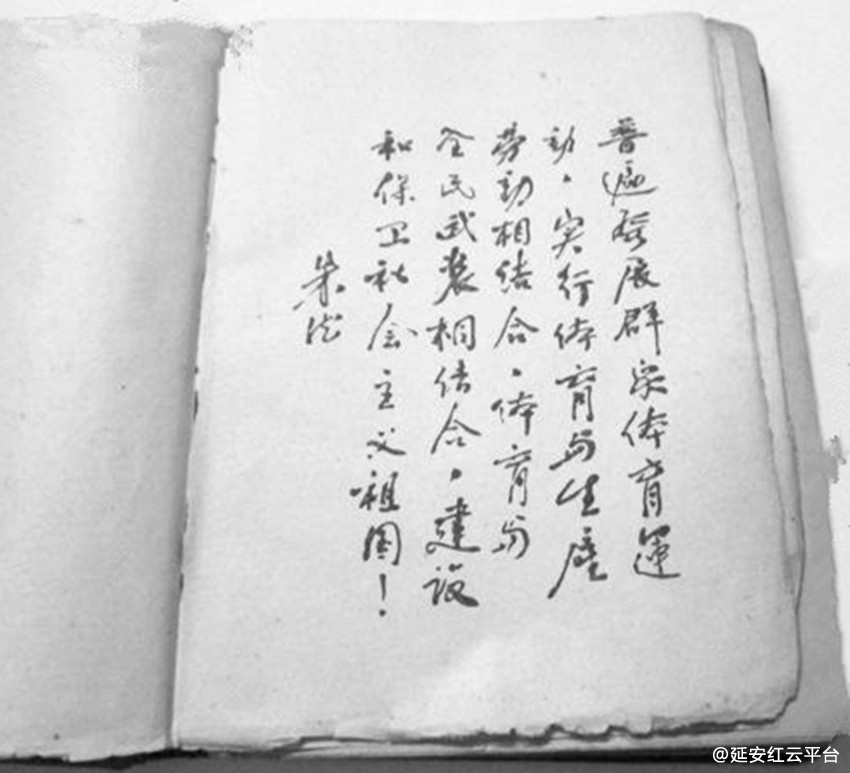 普遍發展群众体育運
动，实行体育与生產
劳动相结合，体育与
全民武装相结合，建設
和保卫社会主义祖国！
朱德
@延安红云平台